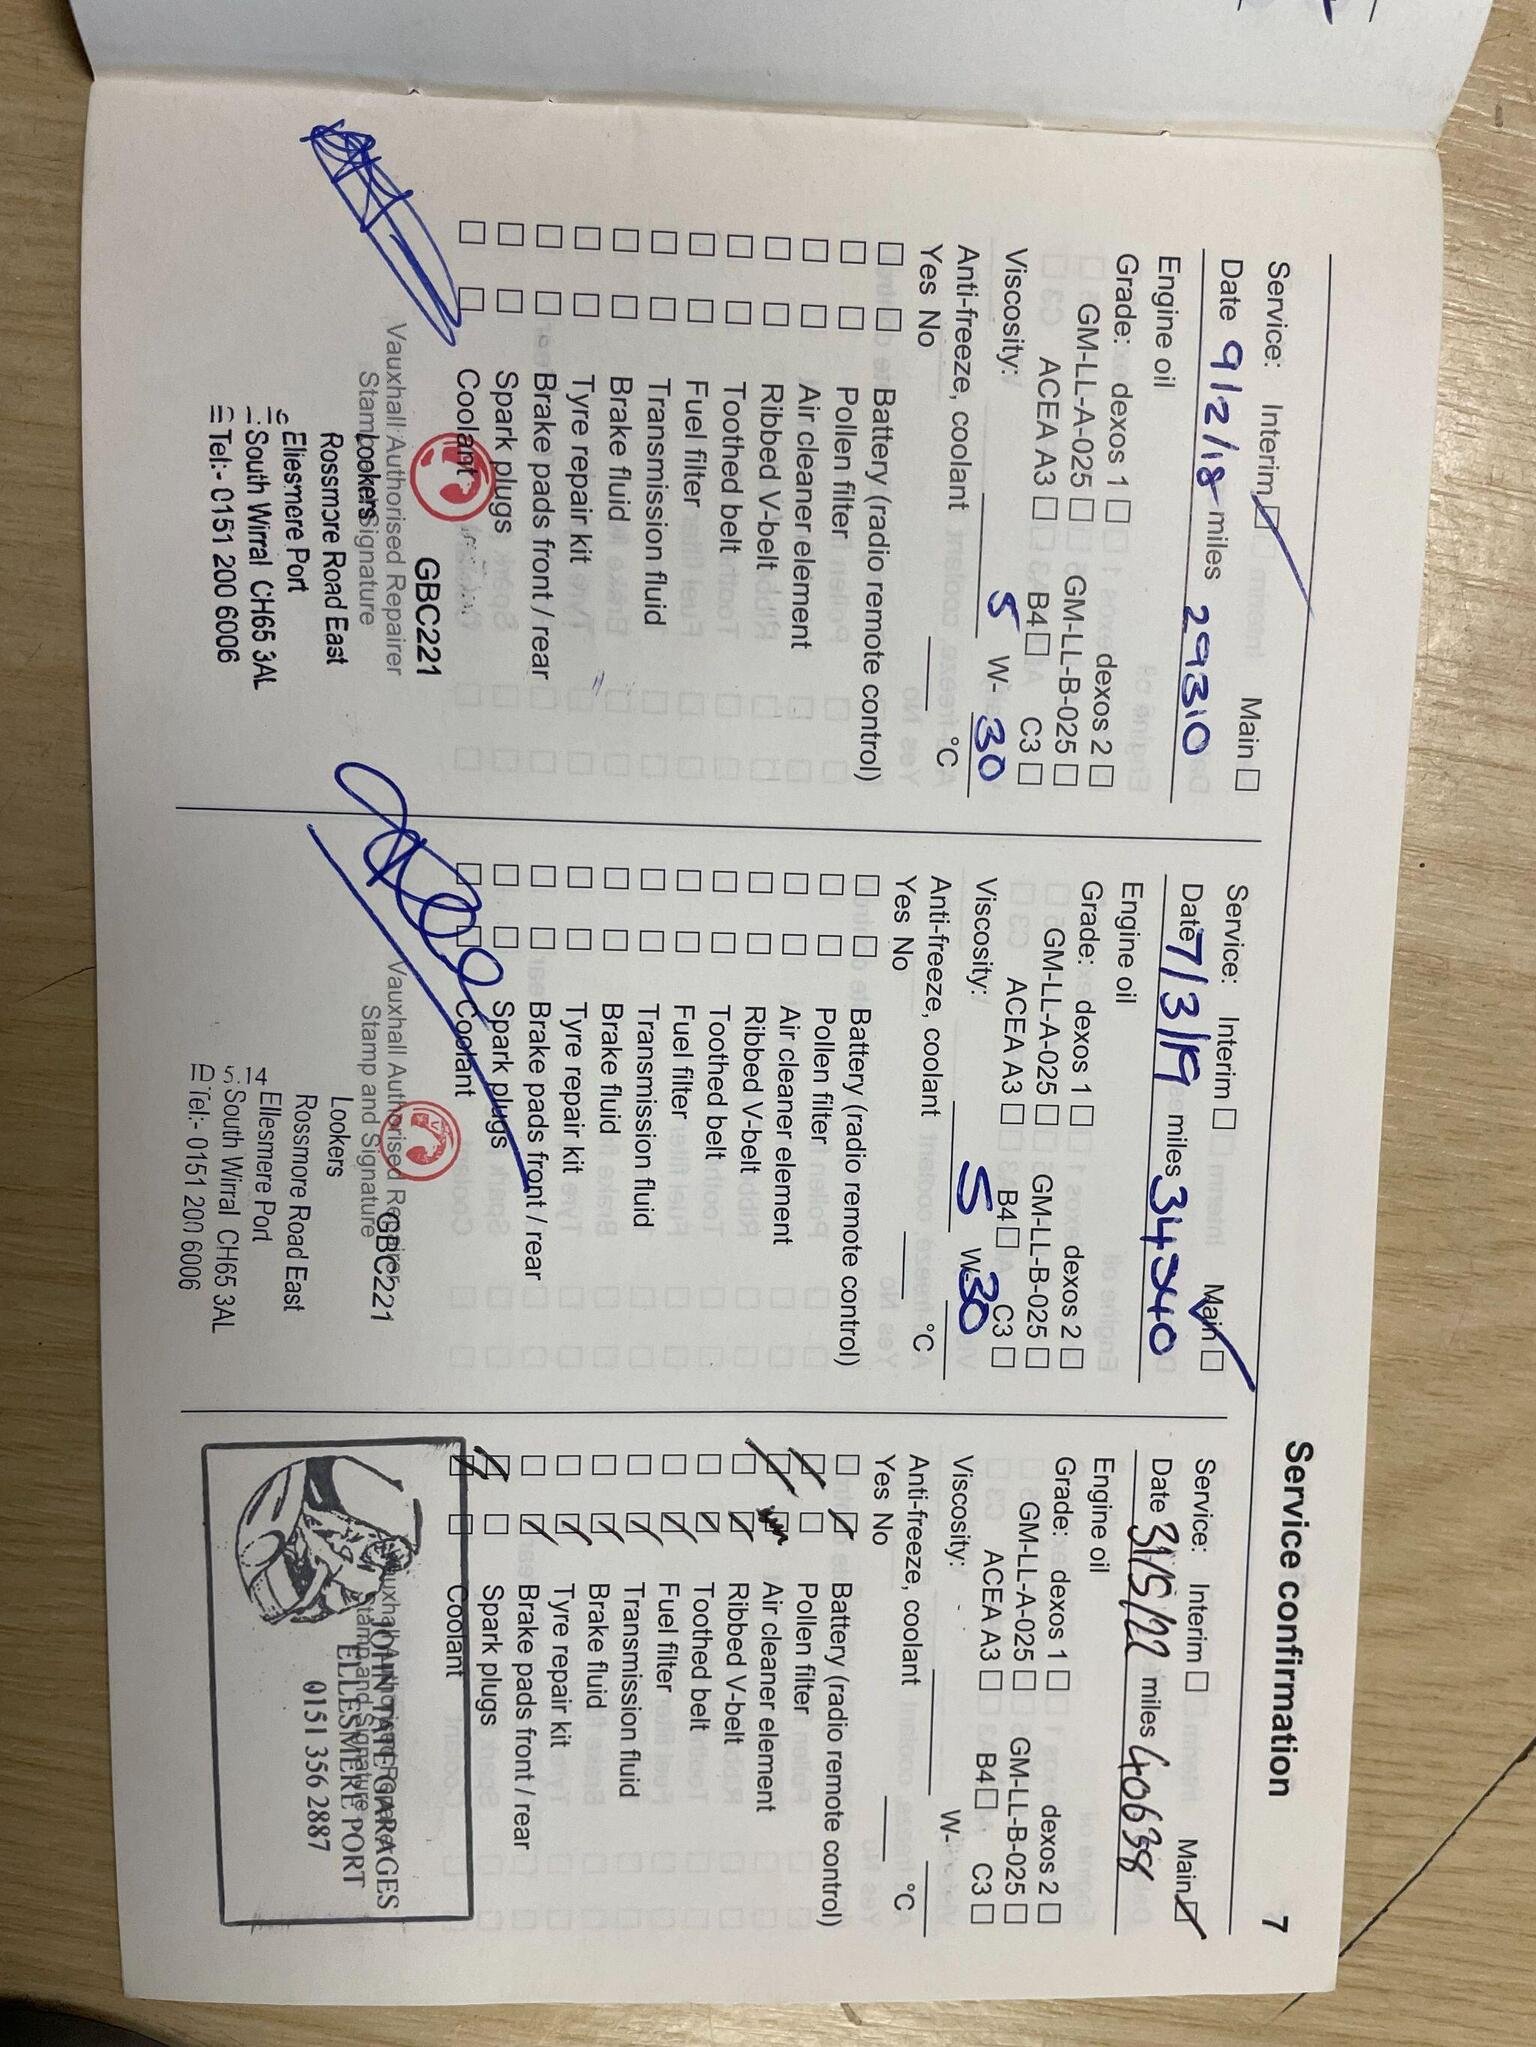 Service confirmation 7
Service: Interim ☑ Main ☐
Date 9/2/18 miles 29310
Engine oil
Grade: dexos 1 ☐ dexos 2 ☐
GM-LL-A-025 ☐ GM-LL-B-025 ☐
ACEA A3 ☐ B4 ☐ C3 ☐
Viscosity: 5 W- 30
Anti-freeze, coolant °C
Yes No
☐ ☐ Battery (radio remote control)
☐ ☐ Pollen filter
☐ ☐ Air cleaner element
☐ ☐ Ribbed V-belt
☐ ☐ Toothed belt
☐ ☐ Fuel filter
☐ ☐ Transmission fluid
☐ ☐ Brake fluid
☐ ☐ Tyre repair kit
☐ ☐ Brake pads front / rear
☐ ☐ Spark plugs
☐ ☐ Coolant
GBC221
Vauxhall Authorised Repairer
Stamp and Signature
Lookers
Rossmore Road East
Ellesmere Port
South Wirral CH65 3AL
Tel:- 0151 200 6006
Service: Interim ☐ Main ☑
Date 7/3/19 miles 34340
Engine oil
Grade: dexos 1 ☐ dexos 2 ☐
GM-LL-A-025 ☐ GM-LL-B-025 ☐
ACEA A3 ☐ B4 ☐ C3 ☐
Viscosity: 5 W- 30
Anti-freeze, coolant °C
Yes No
☐ ☐ Battery (radio remote control)
☐ ☐ Pollen filter
☐ ☐ Air cleaner element
☐ ☐ Ribbed V-belt
☐ ☐ Toothed belt
☐ ☐ Fuel filter
☐ ☐ Transmission fluid
☐ ☐ Brake fluid
☐ ☐ Tyre repair kit
☐ ☐ Brake pads front / rear
☐ ☐ Spark plugs
☐ ☐ Coolant
GBC221
Vauxhall Authorised Repairer
Stamp and Signature
Lookers
Rossmore Road East
Ellesmere Port
South Wirral CH65 3AL
Tel:- 0151 200 6006
Service: Interim ☐ Main ☑
Date 31/5/22 miles 40638
Engine oil
Grade: dexos 1 ☐ dexos 2 ☐
GM-LL-A-025 ☐ GM-LL-B-025 ☐
ACEA A3 ☐ B4 ☐ C3 ☐
Viscosity: W-
Anti-freeze, coolant °C
Yes No
☐ ☑ Battery (radio remote control)
☑ ☐ Pollen filter
☑ ☐ Air cleaner element
☐ ☑ Ribbed V-belt
☐ ☑ Toothed belt
☐ ☑ Fuel filter
☐ ☑ Transmission fluid
☐ ☑ Brake fluid
☐ ☑ Tyre repair kit
☐ ☑ Brake pads front / rear
☑ ☐ Spark plugs
☑ ☐ Coolant
Vauxhall Authorised Repairer
Stamp and Signature
JOHN TATE GARAGES
ELLESMERE PORT
0151 356 2887